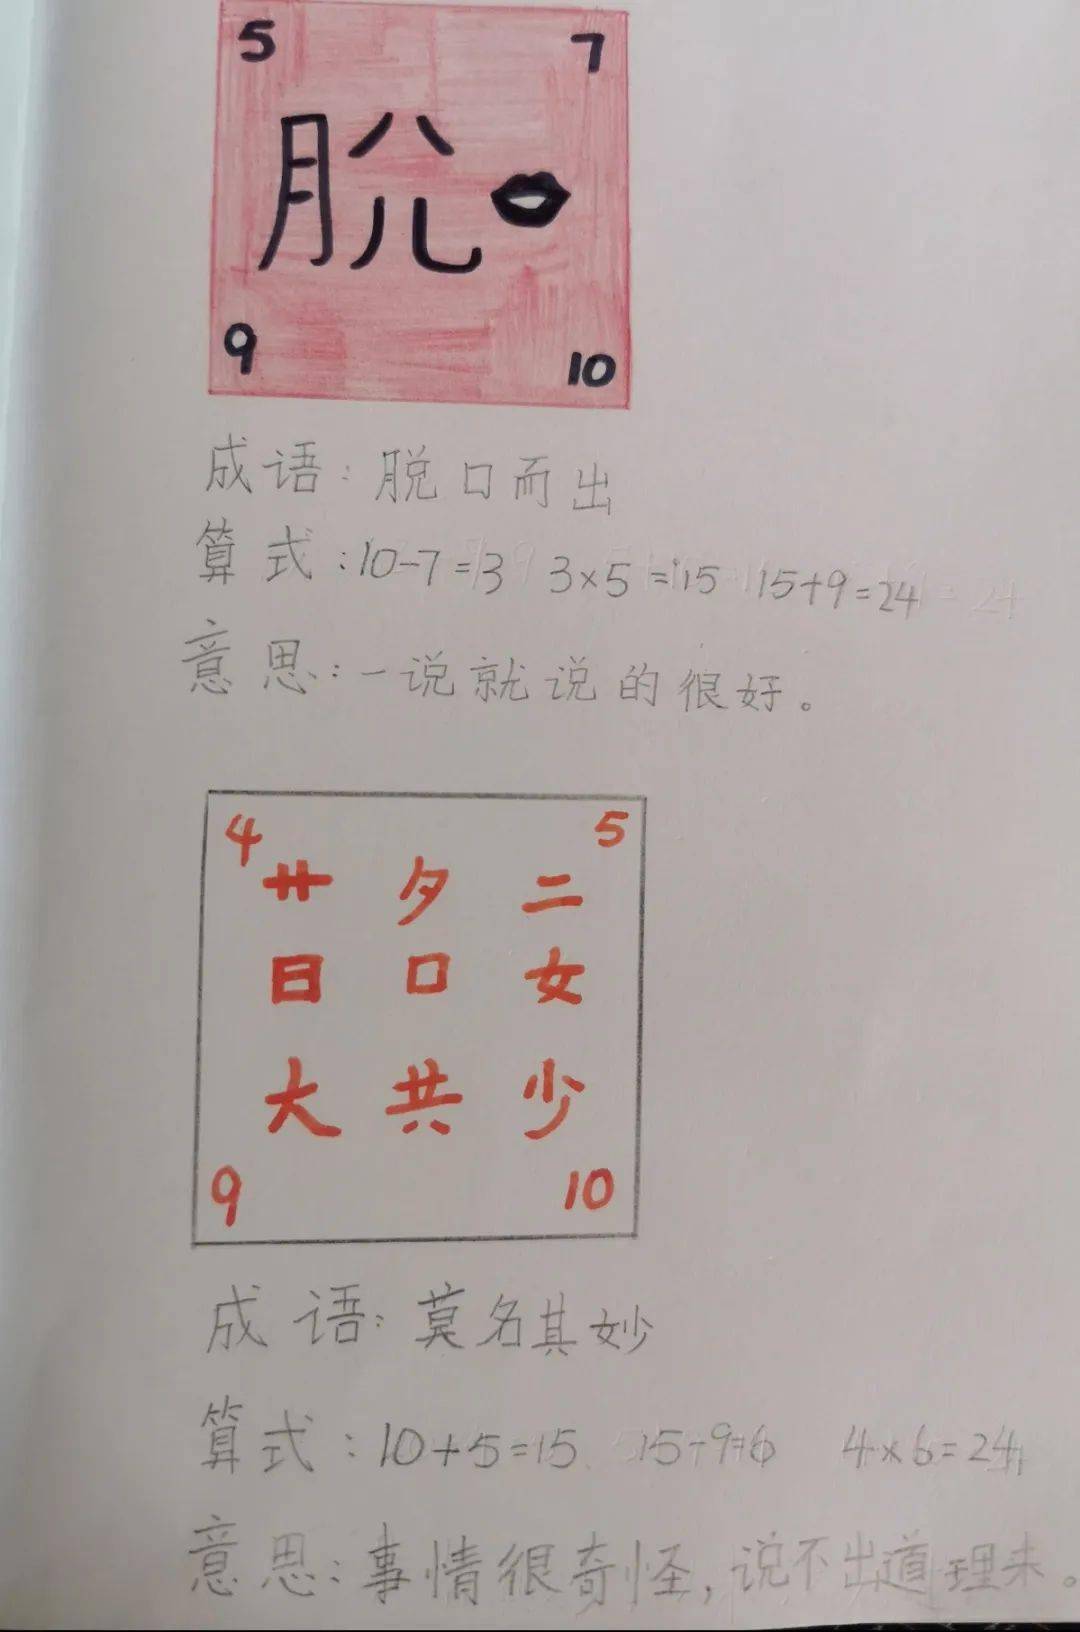 5 7
脱
9 10
成语：脱口而出
算式：10-7=3 3×5=15 15+9=24
意思：一说就说的很好。
4 5
艹 夕 二
日 口 女
大 共 少
9 10
成语：莫名其妙
算式：10+5=15 15-9=6 4×6=24
意思：事情很奇怪，说不出道理来。